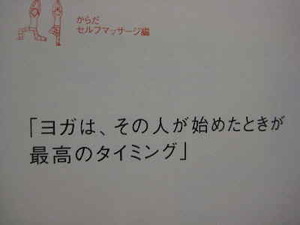 からだ
セルフマッサージ編
「ヨガは、その人が始めたときが
最高のタイミング」